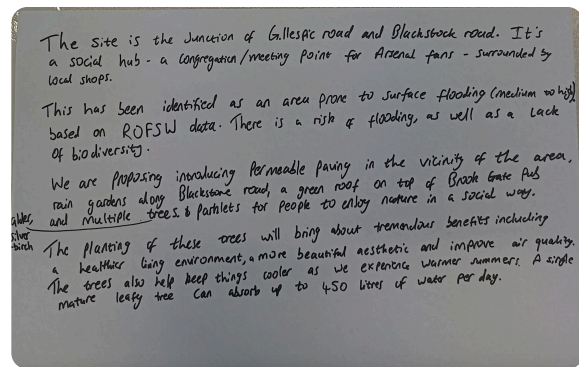 The site is the Junction of Gillespie road and Blackstock road. It's
a social hub - a congregation/meeting point for Arsenal fans - surrounded by
local shops.
This has been identified as an area prone to surface flooding (medium to high)
based on ROFSW data. There is a risk of flooding, as well as a lack
of biodiversity.
We are proposing introducing Permeable Paving in the vicinity of the area,
rain gardens along Blackstone road, a green roof on top of Brook Gate Pub
and multiple trees. & Parklets for people to enjoy nature in a social way.
alder,
silver
-birch
The planting of these trees will bring about tremendous benefits including
a healthier living environment, a more beautiful aesthetic and improve air quality.
The trees also help keep things cooler as we experience warmer summers. A single
mature leafy tree can absorb up to 450 litres of water per day.